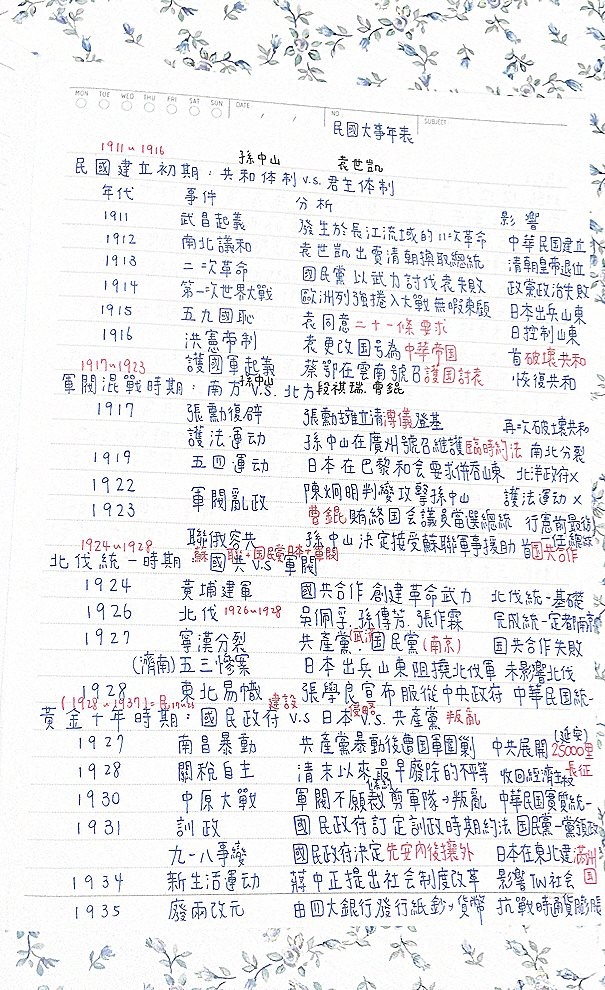 MON TUE WED THU FRI SAT SUN DATE / / NO. SUBJECT
民國大事年表
1911~1916 孫中山 袁世凱
民國建立初期：共和体制 v.s. 君主体制
年代 事件 分析 影響
1911 武昌起義 發生於長江流域的11次革命 中華民国建立
1912 南北議和 袁世凱出賣清朝換取總統 清朝皇帝退位
1913 二次革命 國民黨以武力討伐袁失敗 政黨政治失敗
1914 第一次世界大戰 歐洲列強捲入大戰無暇東顧 日本出兵山東
1915 五九國恥 袁同意二十一條要求 日控制山東
1916 洪憲帝制 袁更改国号為中華帝国 首破壞共和
護國軍起義 蔡鄂在雲南號召護国討袁 恢復共和
1917~1923 孫中山 段祺瑞.曹錕
軍閥混戰時期：南方 v.s. 北方
1917 張勳復辟 張勳擁立清溥儀登基 再次破壞共和
護法運动 孫中山在廣州號召維護臨時約法 南北分裂
1919 五四運动 日本在巴黎和会要求併吞山東 北洋政府x
1922 軍閥亂政 陳炯明判變攻擊孫中山 護法運动x
1923 曹錕賄絡国会議員當選總統 行憲前最後
聯俄容共 孫中山決定接受蘇聯軍事援助 首国共合作
1924~1928
北伐統一時期：國共 v.s 軍閥
1924 黃埔建軍 國共合作創建革命武力 北伐統一基礎
1926 北伐 1926~1928 吳佩孚.孫傳芳.張作霖 完成統一定都南京
1927 寧漢分裂 共產黨(武漢).國民黨(南京) 国共合作失敗
(濟南)五三慘案 日本出兵山東阻撓北伐軍 未影響北伐
1928 東北易幟 張學良宣布服從中央政府 中華民国統一
(1928~1937) 建設 侵略
黃金十年時期：國民政府 v.s 日本 v.s. 共產黨 叛亂
1927 南昌暴動 共產黨暴動後遭国軍圍剿 中共展開(延安)25000里長征
1928 關稅自主 清末以來最早廢除的不平等條約 收回經濟主权
1930 中原大戰 軍閥不願裁剪軍隊→叛亂 中華民国實質統一
1931 訓政 國民政府訂定訓政時期約法 国民黨一黨領政
九一八事變 國民政府決定先安內後攘外 日本在東北建滿洲国
1934 新生活運动 蔣中正提出社会制度改革 影響TW社会
1935 廢兩改元 由四大銀行發行紙鈔→貨幣 抗戰時通貨膨脹